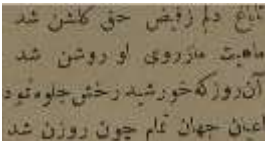 تا باغ دلم ز فیض حق گلشن شد
ماهیت ما ز روی او روشن شد
آن روز که خورشید رخش جلوه نمود
اعیان جهان تمام چون روزن شد